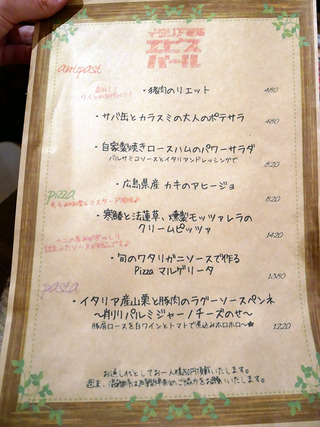 イタリア酒場
エビス
バール
antipast
・豚肉のリエット 480
・サバ缶とカラスミの大人のポテサラ 480
・自家製焼きロースハムのパワーサラダ
バルサミコソースとイタリアンドレッシングで 820
・広島県産 カキのアヒージョ 820
pizza
・寒鰆と法蓮草、燻製モッツァレラの
クリームピッツァ 1420
・旬のワタリガニソースで作る
Pizza マルゲリータ 1380
pasta
・イタリア産山栗と豚肉のラグーソースペンネ
〜削りパルミジャーノチーズのせ〜
豚肩ロースを白ワインとトマトで煮込みホロホロ〜 1220